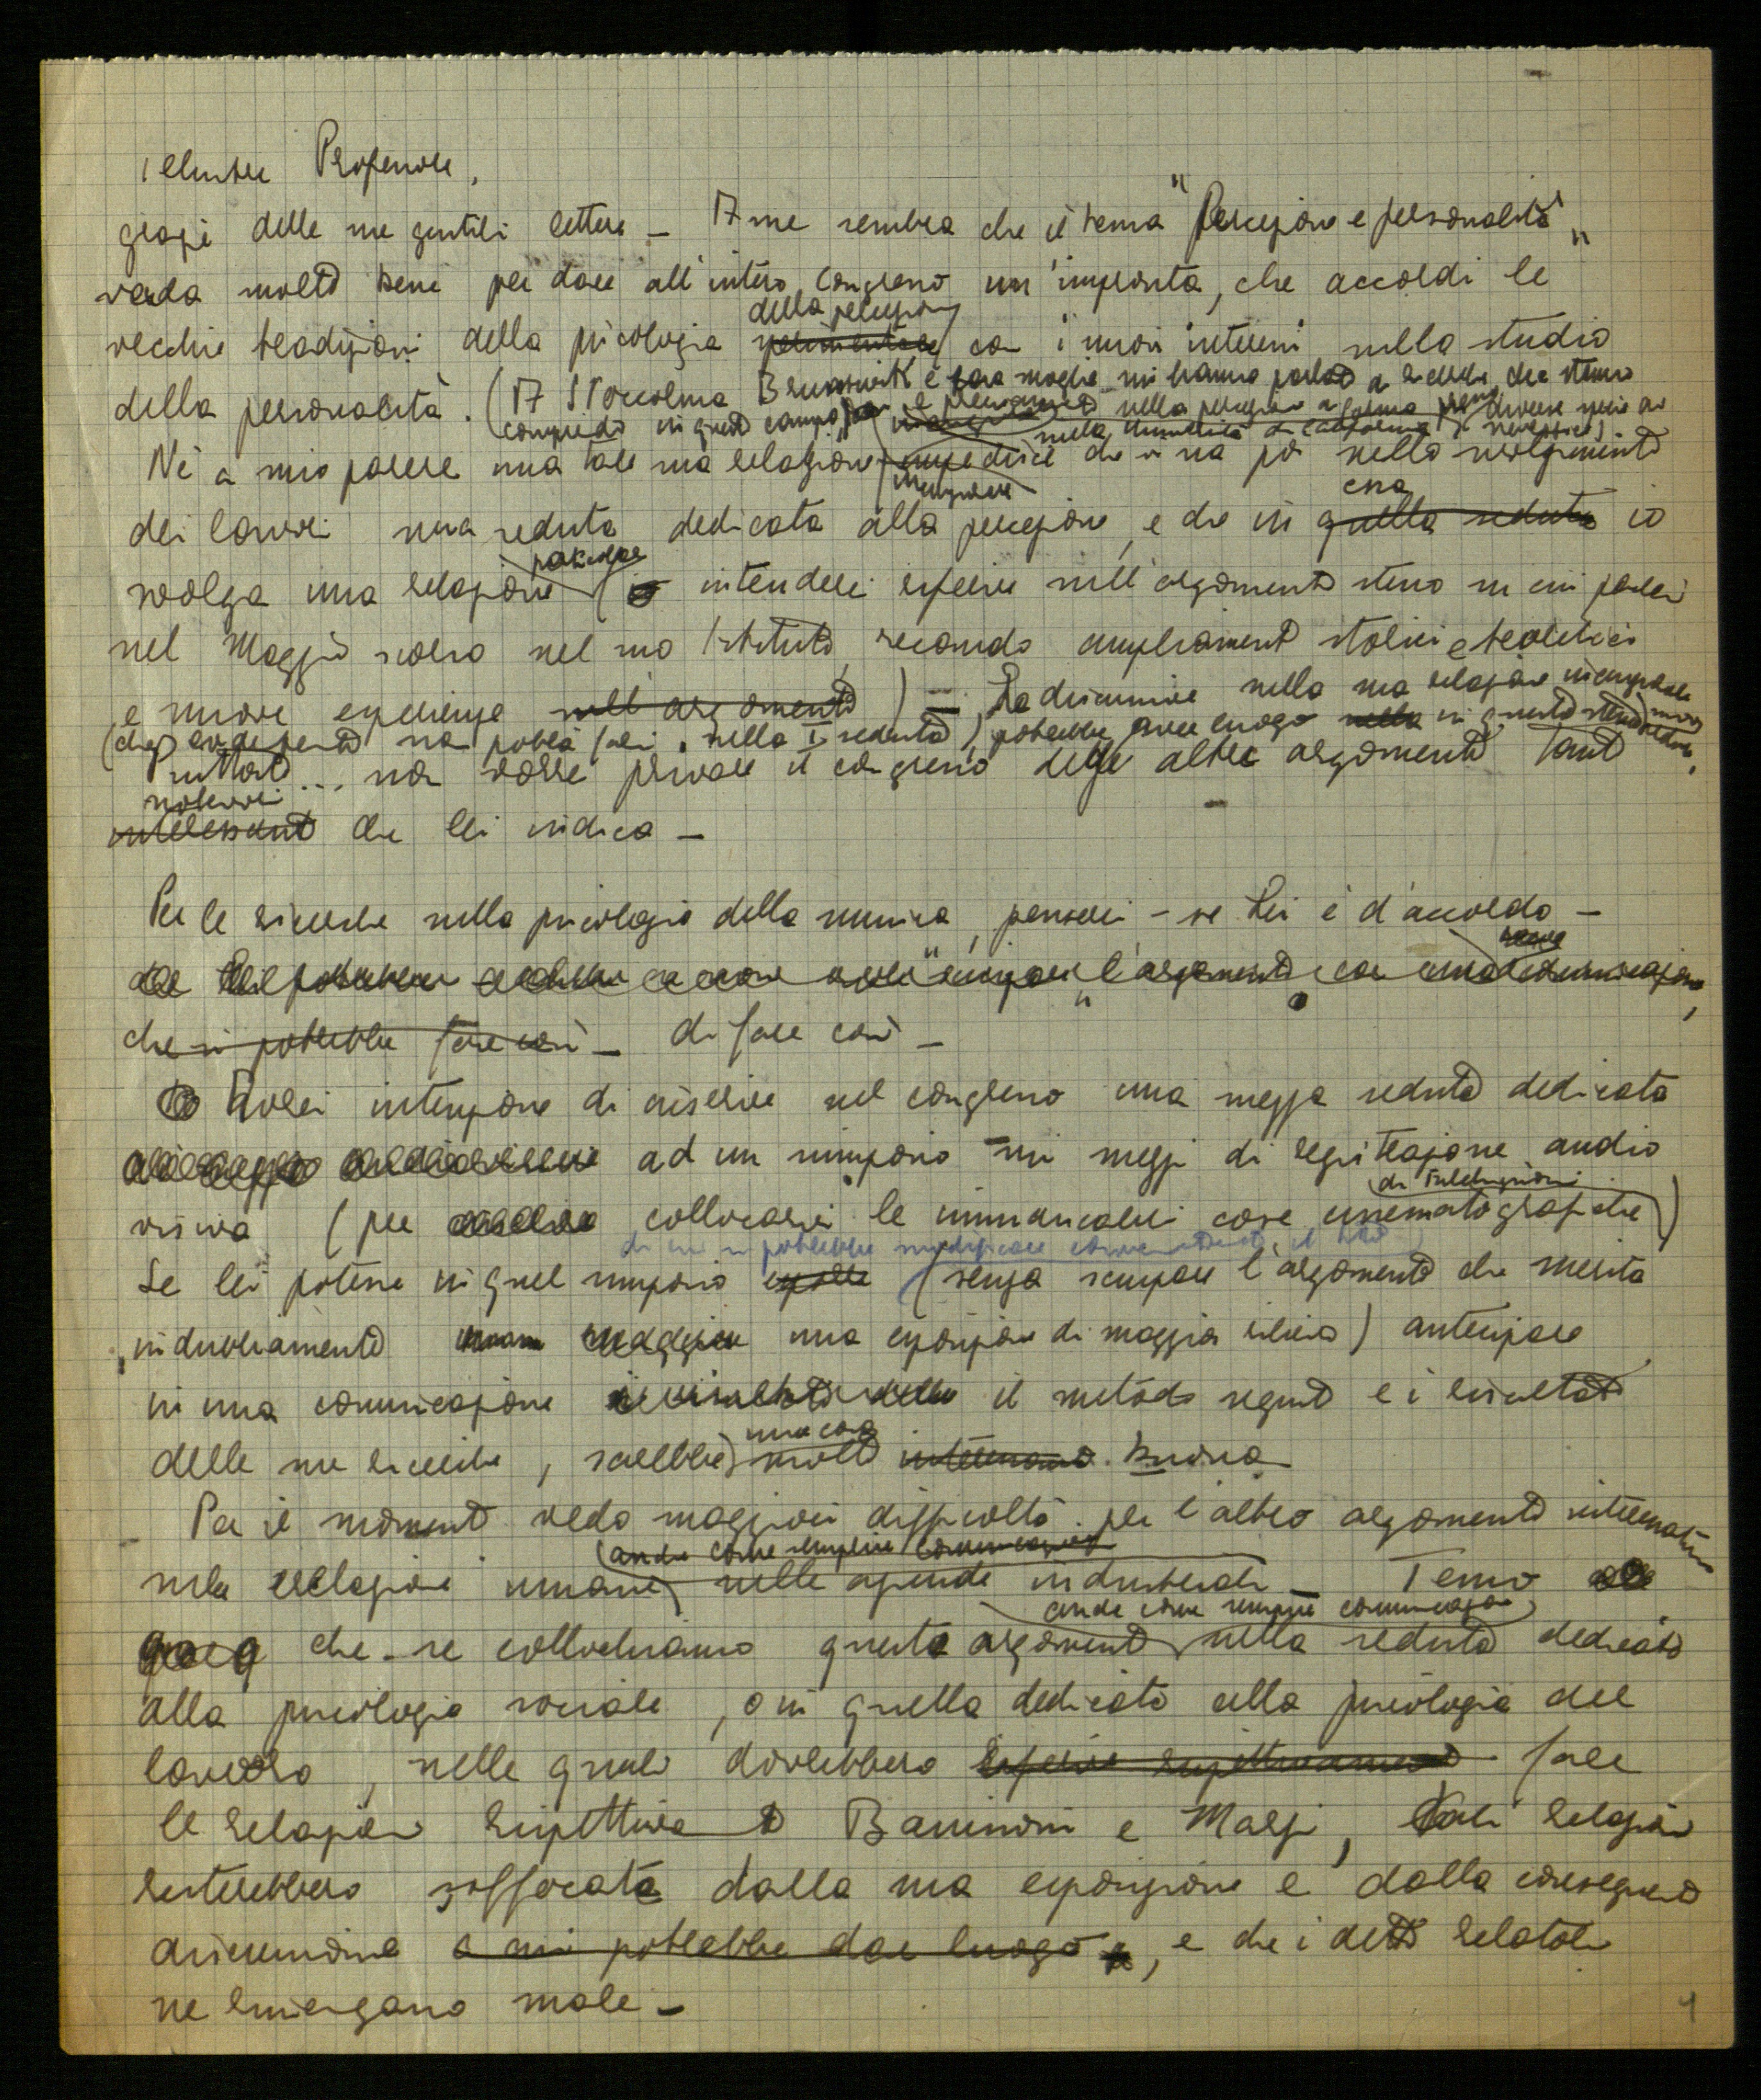 Illustre Professore,
grazie delle sue gentili lettere - A me sembra che il tema "Percezione e personalità"
vada molto bene per dare all'intero congresso un'impronta, che accordi le
della percezione
vecchie tradizioni della psicologia sperimentale con i nuovi interessi sullo studio
della personalità. (A Stoccolma Brunswik e sua moglie mi hanno parlato di ricerche che stanno
compiendo in questo campo
nella Università di California
Nè a mio parere una tale sua relazione impedisce che vi sia poi nello svolgimento
essa
dei lavori una seduta dedicata alla percezione, e che in quella seduta io
svolga una relazione (io intenderei riferire sull'argomento stesso su cui parlai
nel Maggio scorso nel suo Istituto, recando ampliamenti storici e teoretici
e nuove esperienze sull'argomento) - La discussione sulla sua relazione inaugurale
(che evidentemente non potrà farsi nella 1ª seduta) potrebbe aver luogo nella in questa stessa seduta.
Piuttosto ... non vorrei privare il congresso delle altre argomento tanto
notevoli
interessanti che lei indica -
Per le ricerche sulla psicologia della musica, penserei - se Lei è d'accordo -
che si potrebbe fare così - di fare così -
Avrei intenzione di inserire nel congresso una mezza seduta dedicata
ad un simposio sui mezzi di registrazione audio
di Introduzioni
visiva (per collocarvi le immancabili cose cinematografiche)
di cui si potrebbe modificare convenientemente il titolo
Se lei potesse in quel simposio esporre (senza sciupare l'argomento che merita
indubbiamente una esposizione di maggior rilievo) anticipare
in una comunicazione i risultati delle il metodo seguito e i risultati
una cosa
delle sue ricerche, sarebbe molto interessante. buona
Per il momento vedo maggiori difficoltà per l'altro argomento interessantissimo
(anche come semplice comunicazione
sulle relazioni umane nelle aziende industriali - Temo
anche come semplice comunicazione
che se collochiamo questo argomento nella seduta dedicata
alla psicologia sociale, o in quella dedicata alla psicologia del
lavoro, nelle quali dovrebbero riferire rispettivamente fare
le relazioni rispettive Banissoni e Marzi, tali relazioni
resterebbero soffocate dalla sua esposizione e dalla conseguente
discussione a cui potrebbe dar luogo, e che i detti relatori
ne emergano male -